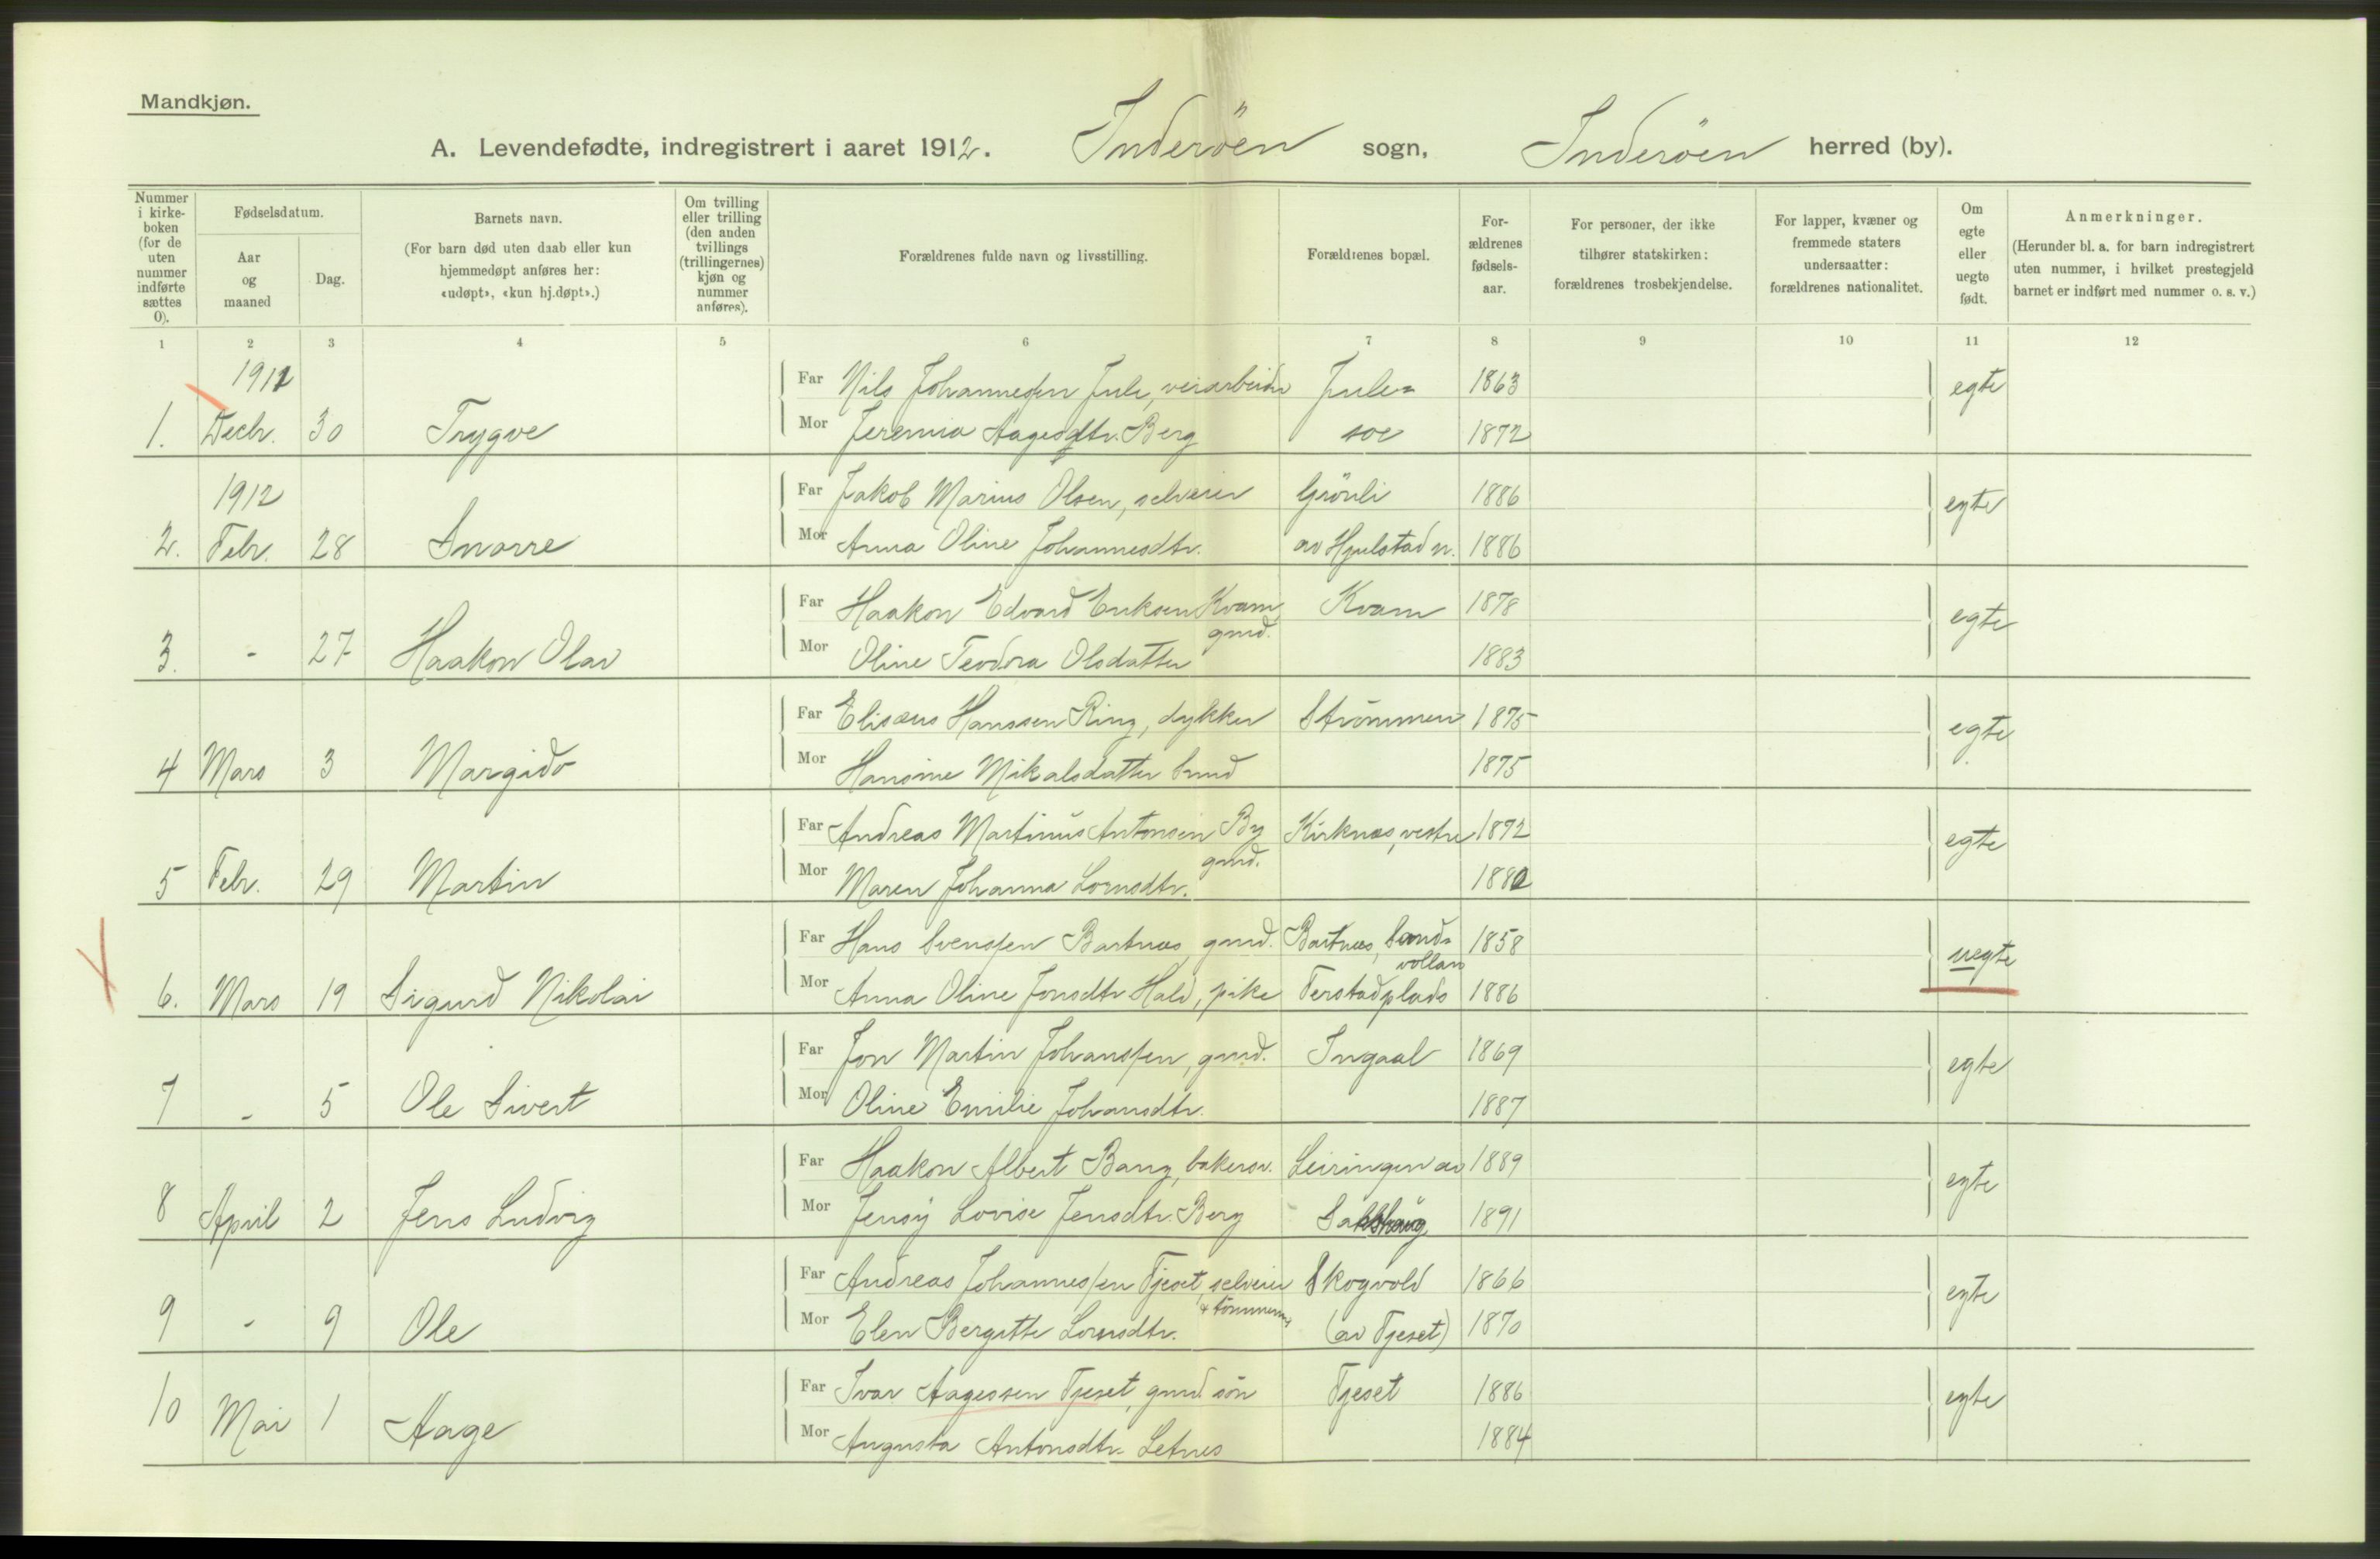 Mandkjøn.
A. Levendefødte, indregistrert i aaret 1912. Inderöen sogn, Inderöen herred (by).
Nummer i kirke- boken (for de uten nummer indførte sættes 0).
Fødselsdatum.
Aar og maaned
Dag.
Barnets navn.
(For barn død uten daab eller kun hjemmedøpt anføres her: «udøpt», «kun hj.døpt».)
Om tvilling eller trilling (den anden tvillings (trillingernes) kjøn og nummer anføres).
Forældrenes fulde navn og livsstilling.
Forældrenes bopæl.
For- ældrenes fødsels- aar.
For personer, der ikke tilhører statskirken: forældrenes trosbekjendelse.
For lapper, kvæner og fremmede staters undersaatter: forældrenes nationalitet.
Om egte eller uegte født.
Anmerkninger.
(Herunder bl. a. for barn indregistrert uten nummer, i hvilket prestegjeld barnet er indført med nummer o. s. v.)
1 2 3 4 5 6 7 8 9 10 11 12
1911
Far Nils Johannessen Jule, veiarbeider Jule= 1863 egte
1. Decbr. 30 Trygve
Mor Jeremia Aagesdtr. Berg soe 1872
1912
Far Jakob Marius Olsen, selveier Grönli 1886 egte
2. Febr. 28 Snorre
Mor Anna Oline Johannesdtr. av Hjulstad n. 1886
Far Haakon Edvard Eriksen Kvam, Kvam 1878 egte
gmd.
3. - 27 Haakon Olav
Mor Oline Teodora Olsdatter 1883
Far Elisæus Hanssen Ring, dykker Strömmen 1875 egte
4 Mars 3 Margido
Mor Hansine Mikalsdatter Sund 1875
Far Andreas Martinus Antonsen By Kirknes, vestre 1872 egte
gmd.
5 Febr. 29 Martin
Mor Maren Johanna Lornsdtr. 1880
Far Hans Svenssen Bartnes, gmd. Bartnes, Sand= 1858 uegte
vollan
6. Mars 19 Sigurd Nikolai
Mor Anna Oline Jonsdtr Hald, pike Ferstadplads 1886
Far Jon Martin Johanssen, gmd. Ingaal 1869 egte
7 - 5 Ole Sivert
Mor Oline Emilie Johansdtr. 1887
Far Haakon Albert Bang, bakersv. Leiringen av 1889 egte
8 April 2 Jens Ludvig
Mor Jensy Lovise Jensdtr. Berg Sakshaug 1891
Far Andreas Johannessen Tjeset, selveier Skogvold 1866 egte
& tömmerm.
9 - 9 Ole
Mor Elen Bergitte Lornsdtr. (av Tjeset) 1870
Far Ivar Aagessen Tjeset, gmd. sön Tjeset 1886 egte
10 Mai 1 Aage
Mor Augusta Antonsdtr. Letnes 1884